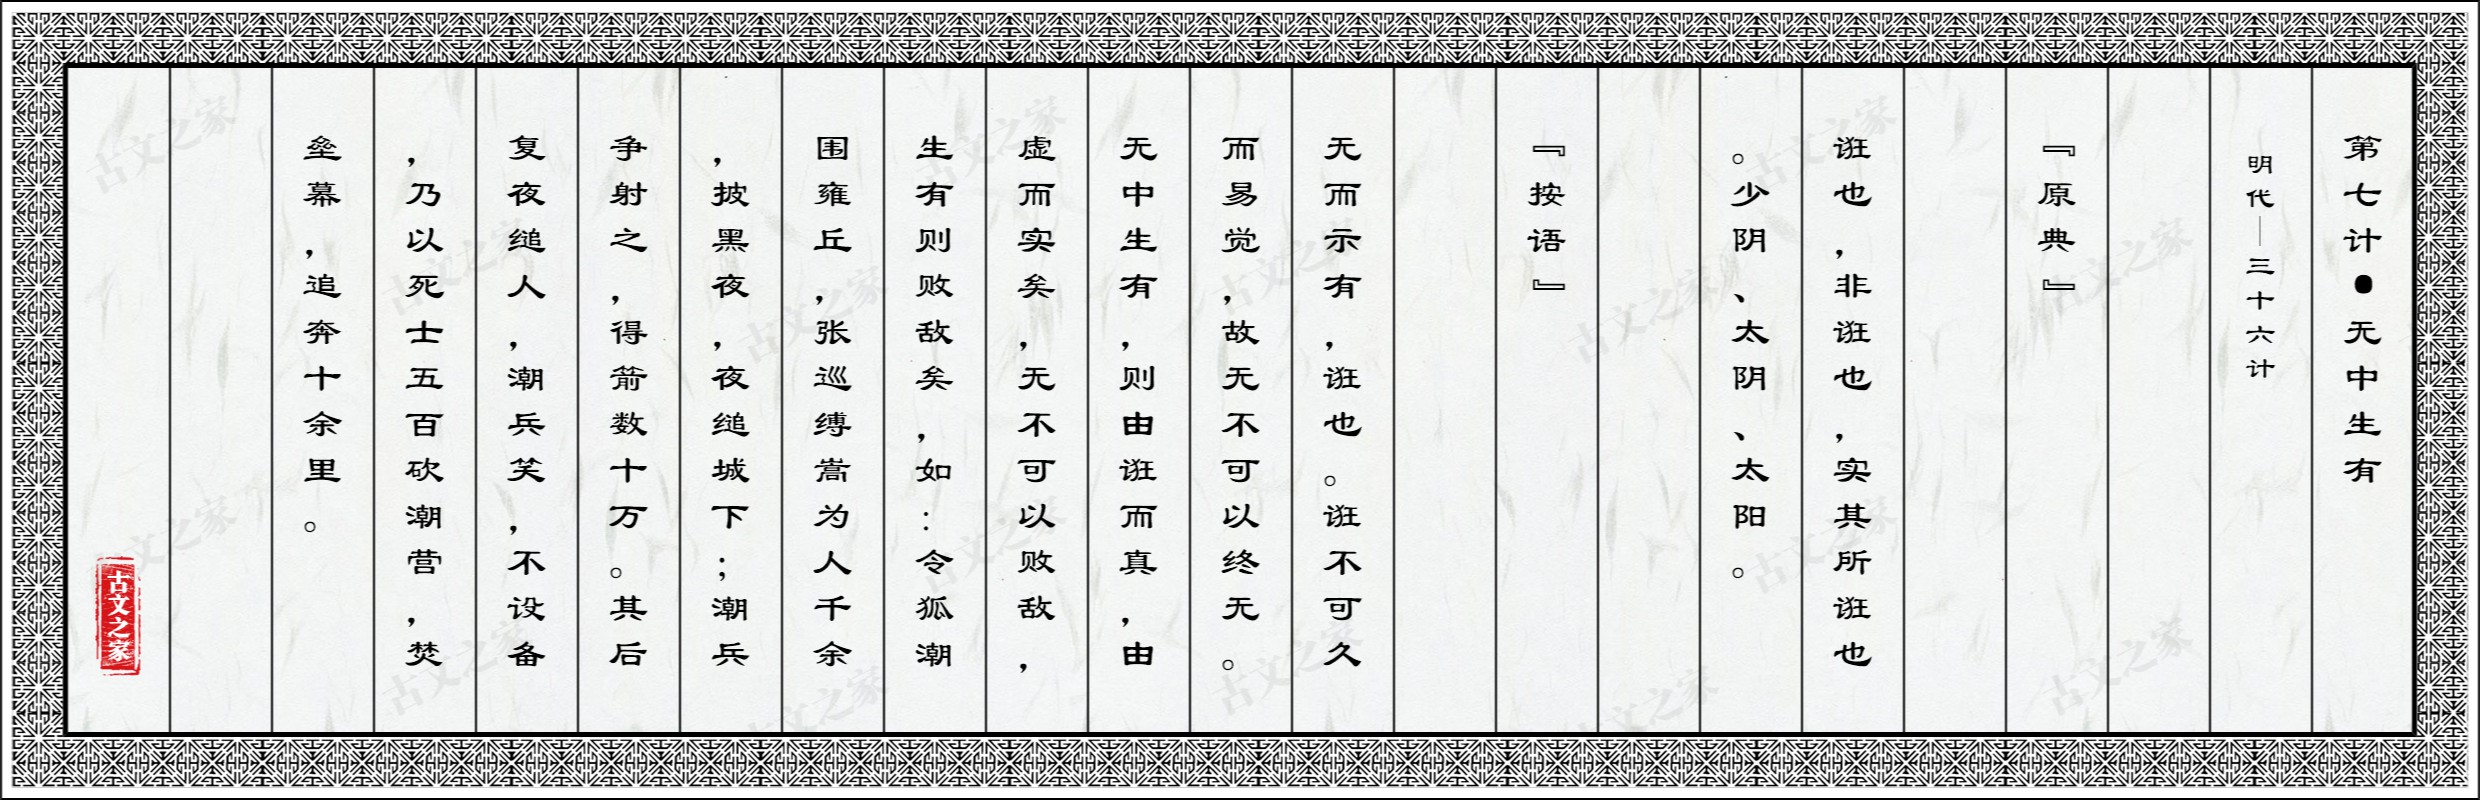 第七计●无中生有
明代—三十六计
『原典』
诳也，非诳也，实其所诳也
。少阴、太阴、太阳。
『按语』
无而示有，诳也。诳不可久
而易觉，故无不可以终无。
无中生有，则由诳而真，由
虚而实矣，无不可以败敌，
生有则败敌矣，如：令狐潮
围雍丘，张巡缚嵩为人千余
，披黑夜，夜缒城下；潮兵
争射之，得箭数十万。其后
复夜缒人，潮兵笑，不设备
，乃以死士五百砍潮营，焚
垒幕，追奔十余里。
古文之家